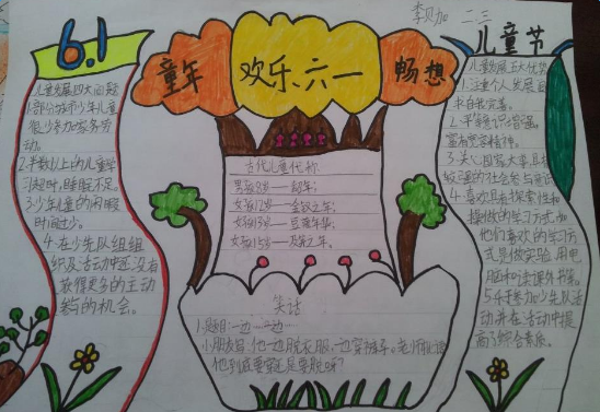 李贝加 二三
6.1
童年
欢乐六一
畅想
儿童节
儿童发展四大问题
1.部分城市少年儿童
很少参加家务劳
动。
2.半数以上的儿童学
习超时,睡眠不足。
3.少年儿童的闲暇
时间过少。
4.在少先队组组
织及活动中还没有
获得更多的主动
参与的机会。
古代儿童代称
男孩8岁——龆年;
女孩12岁——金钗之年;
女孩13岁——豆蔻年华;
女孩15岁——及笄之年。
笑话
1.题目:一边……一边……
小朋友写:他一边脱衣服,一边穿裤子。老师批语:
他到底要穿还是要脱呀?
儿童发展五大优势
1.注重个人发展
自我完善。
2.平等意识增强,
富有竞争精神。
3.关心国家大事具有
较强的社会参与意识
4.喜欢具有探索性和
操做的学习方式如
他们喜欢的学习方
式是做实验、用电
脑和读课外书等。
5.乐于参加少先队活
动并在活动中提
高了综合素质。